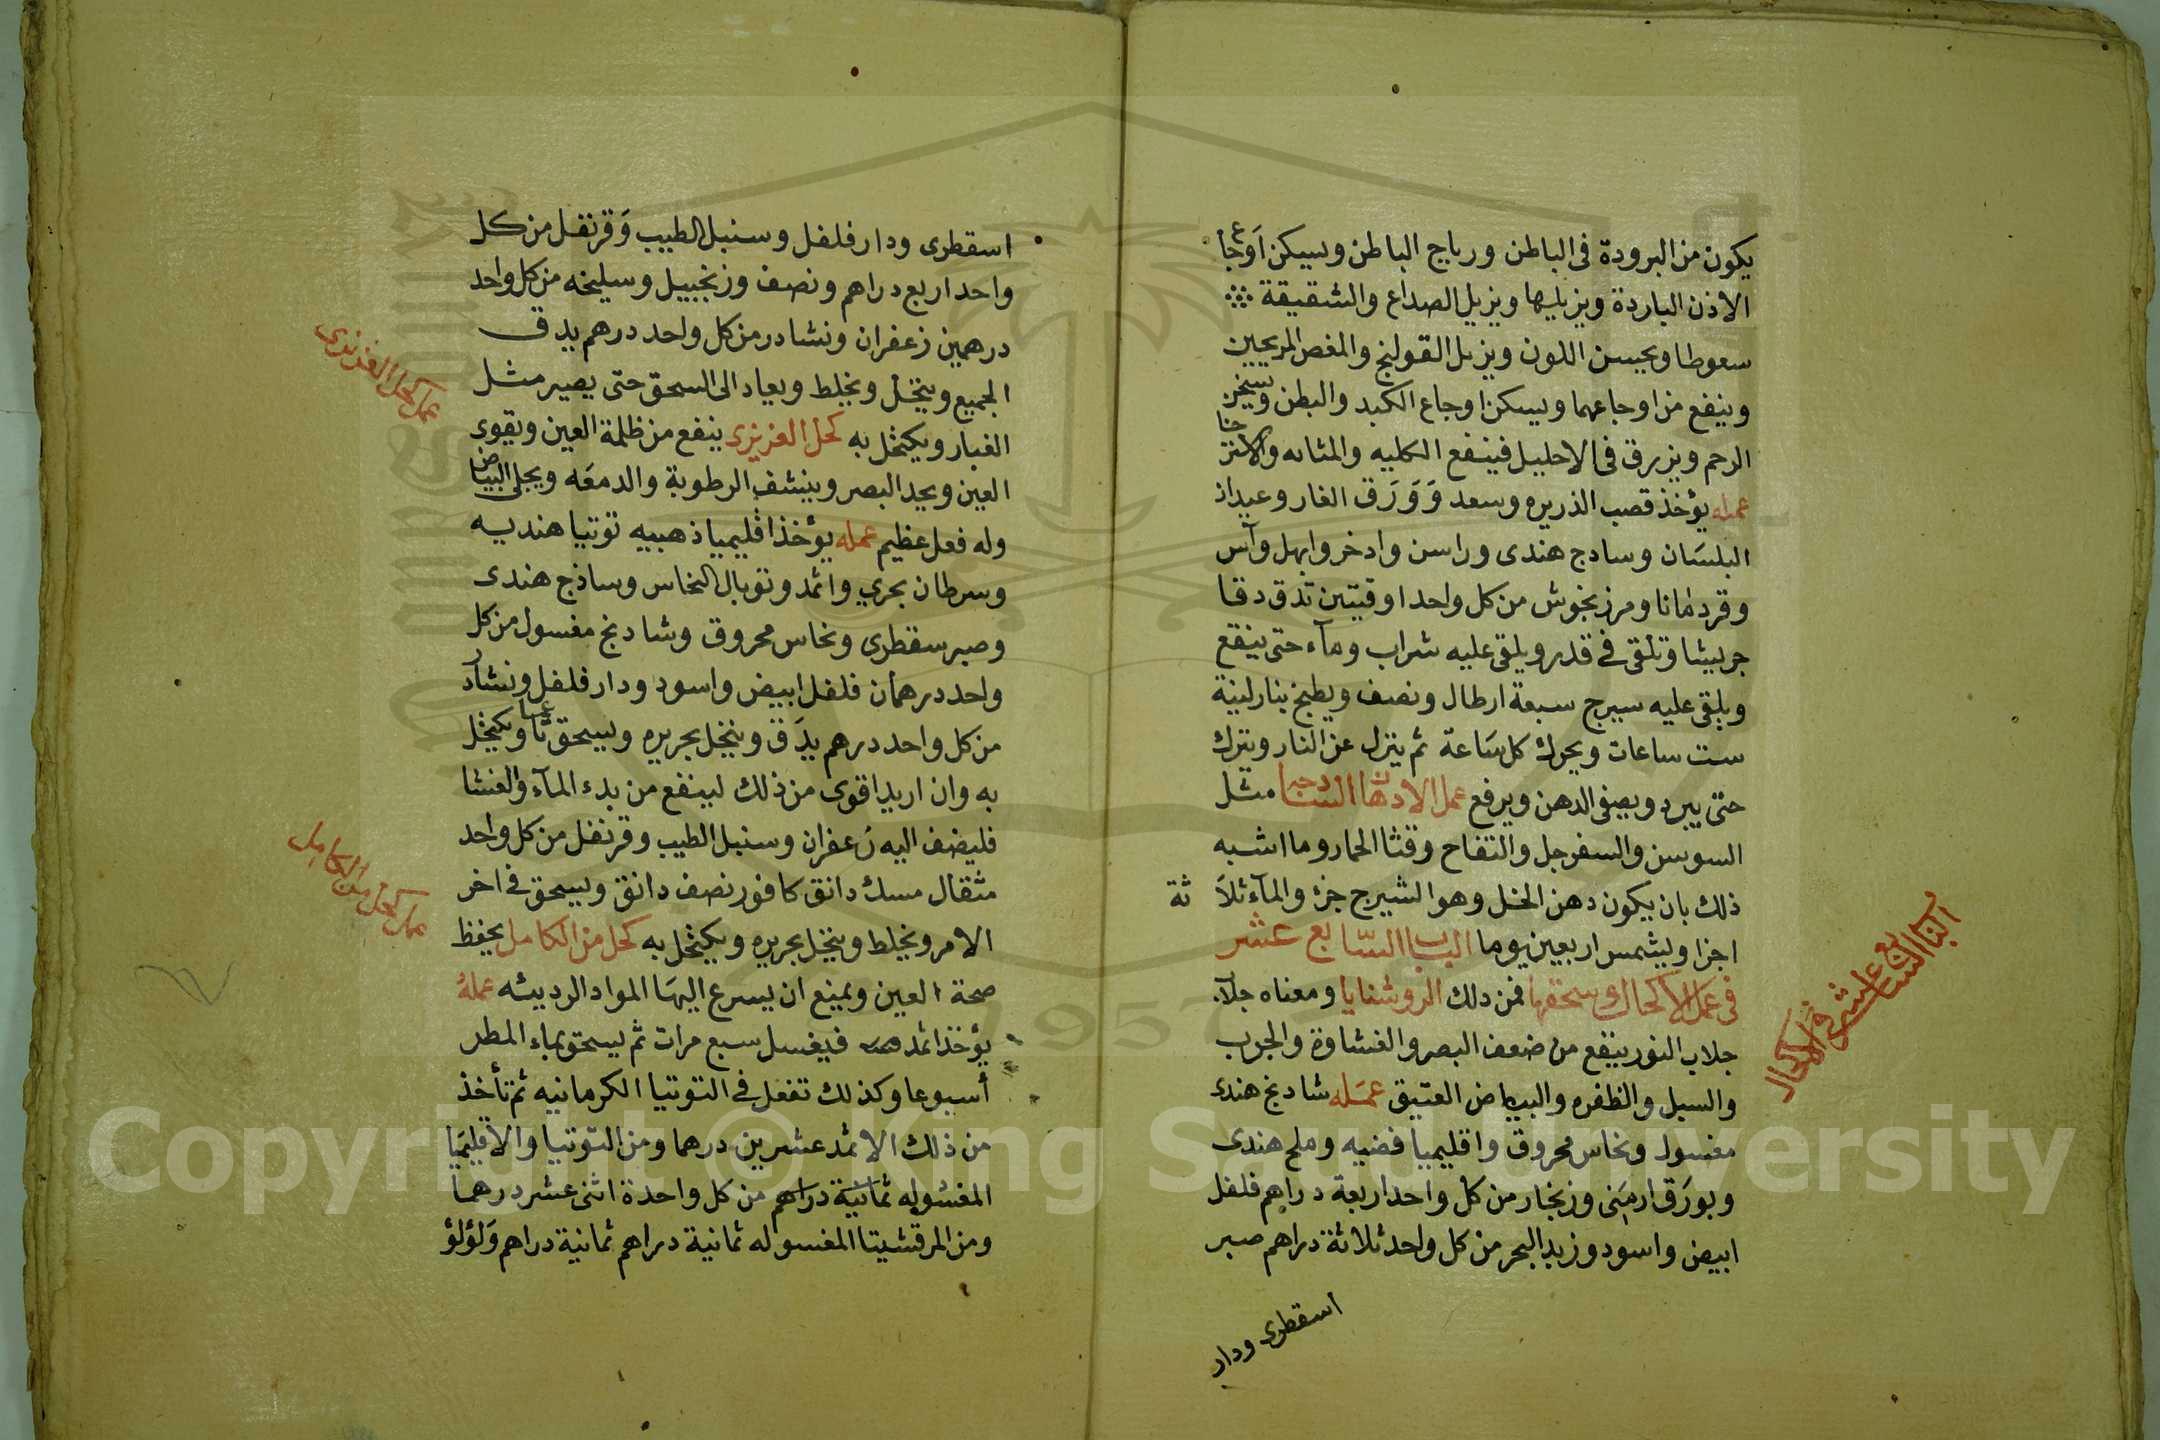 يكون من البرودة فى الباطن ورياح الباطن ويسكن اوجاع
الاذن الباردة ويزيلها ويزيل الصداع والشقيقة
سعوطا ويحسن اللون ويزيل القولنج والمغص المريحيين
وينفع من اوجاعهما ويسكن اوجاع الكبد والبطن ويسخن
الرحم ويزرق فى الاحليل فينفع الكليه والمثانه والاسترخا
عمله يؤخذ قصب الذريره وسعد وَوَرَق الغار وعيدان
البلسَان وسادج هندى وراسن وادخر وابهل وآس
وقردمانا ومرزنجوش من كل واحد اوقيتين تدق دقا
جريشا وتلقى فى قدر ويلقى عليه شراب ومآء حتى ينقع
ويلقى عليه سيرج سبعة ارطال ونصف ويطبخ بنار لينة
ست ساعات ويحرك كل سَاعة ثم ينزل عن النار ويترك
حتى يبرد ويصفى الدهن ويرفع عمل الادهان السادجه مثل
السوسن والسفرجل والتفاح وقثا الحمار وما اشبه
ذلك بان يكون دهن الخل وهو الشيرج جزؤ والمآء ثلاَثة
اجزا ويشمس اربعين يوما الباب السّابع عشر
فى عمل الاكحال وسحقها فمن دلك الروشنايا ومعناه جلاب
جلاب النور ينفع من ضعف البصر والغشاوة والجرب
والسبل والظفره والبياض العتيق عمَله شادنج هندى
مغسول ونحاس محروق واقليميا فضيه وملح هندى
وبورَق ارمَنى وزنجار من كل واحد اربعة دراهم فلفل
ابيض واسود وزبد البحر من كل واحد ثلاثة دراهم صبر
اسقطرى ودار
الباب السابع عشر فى الاكحال
اسقطرى ودارفلفل وسنبل الطيب وَقرنفل من كل
واحد اربع دراهم ونصف وزنجبيل وسليخه من كل واحد
درهمين زعفران ونشادر من كل واحد درهم يدق
الجميع وينخل ويخلط ويعاد الى السحق حتى يصير مثل
الغبار ويكتحل به كحل العزيزى ينفع من ظلمة العين ويقوى
العين ويحد البصر وينشف الرطوبة والدمعَه ويجلى البياض
وله فعل عظيم عمله يؤخذ اقليميا ذهبيه توتيا هنديه
وسرطان بحري واثمد وتوبال النحاس وساذج هندى
وصبر سقطرى ونحاس محروق وشادنج مغسول من كل
واحد درهمان فلفل ابيض واسود ودار فلفل ونشادر
من كل واحد درهم يدَق وينخل بحريره ويسحق ويكتحل
به وان اريد اقوى من ذلك لينفع من بدء المآء والغشا
فليضف اليه زعفران وسنبل الطيب وقرنفل من كل واحد
مثقال مسك دانق كافور نصف دانق ويسحق فى اخر
الامر ويخلط وينخل بحريره ويكتحل به كحل من الكامل يحفظ
صحة العين ويمنع ان يسرع اليهَا المواد الرديئه عملهُ
يؤخذ اثمد فيغسل سبع مرات ثم يسحق بماء المطر
أسبوعا وكذلك تفعل فى التوتيا الكرمانيه ثم تأخذ
من ذلك الاثمد عشرين درهما ومن التوتيا والاقليمَيا
المغسوله ثمانيَة دراهم من كل واحدة اثنى عشر درهما
ومن المرقشيتا المغسوله ثمانية دراهم ثمانية دراهم وَلؤلؤ
عمل كحل
عمل كحل من الكامل
Copyright © King Saud University
1957